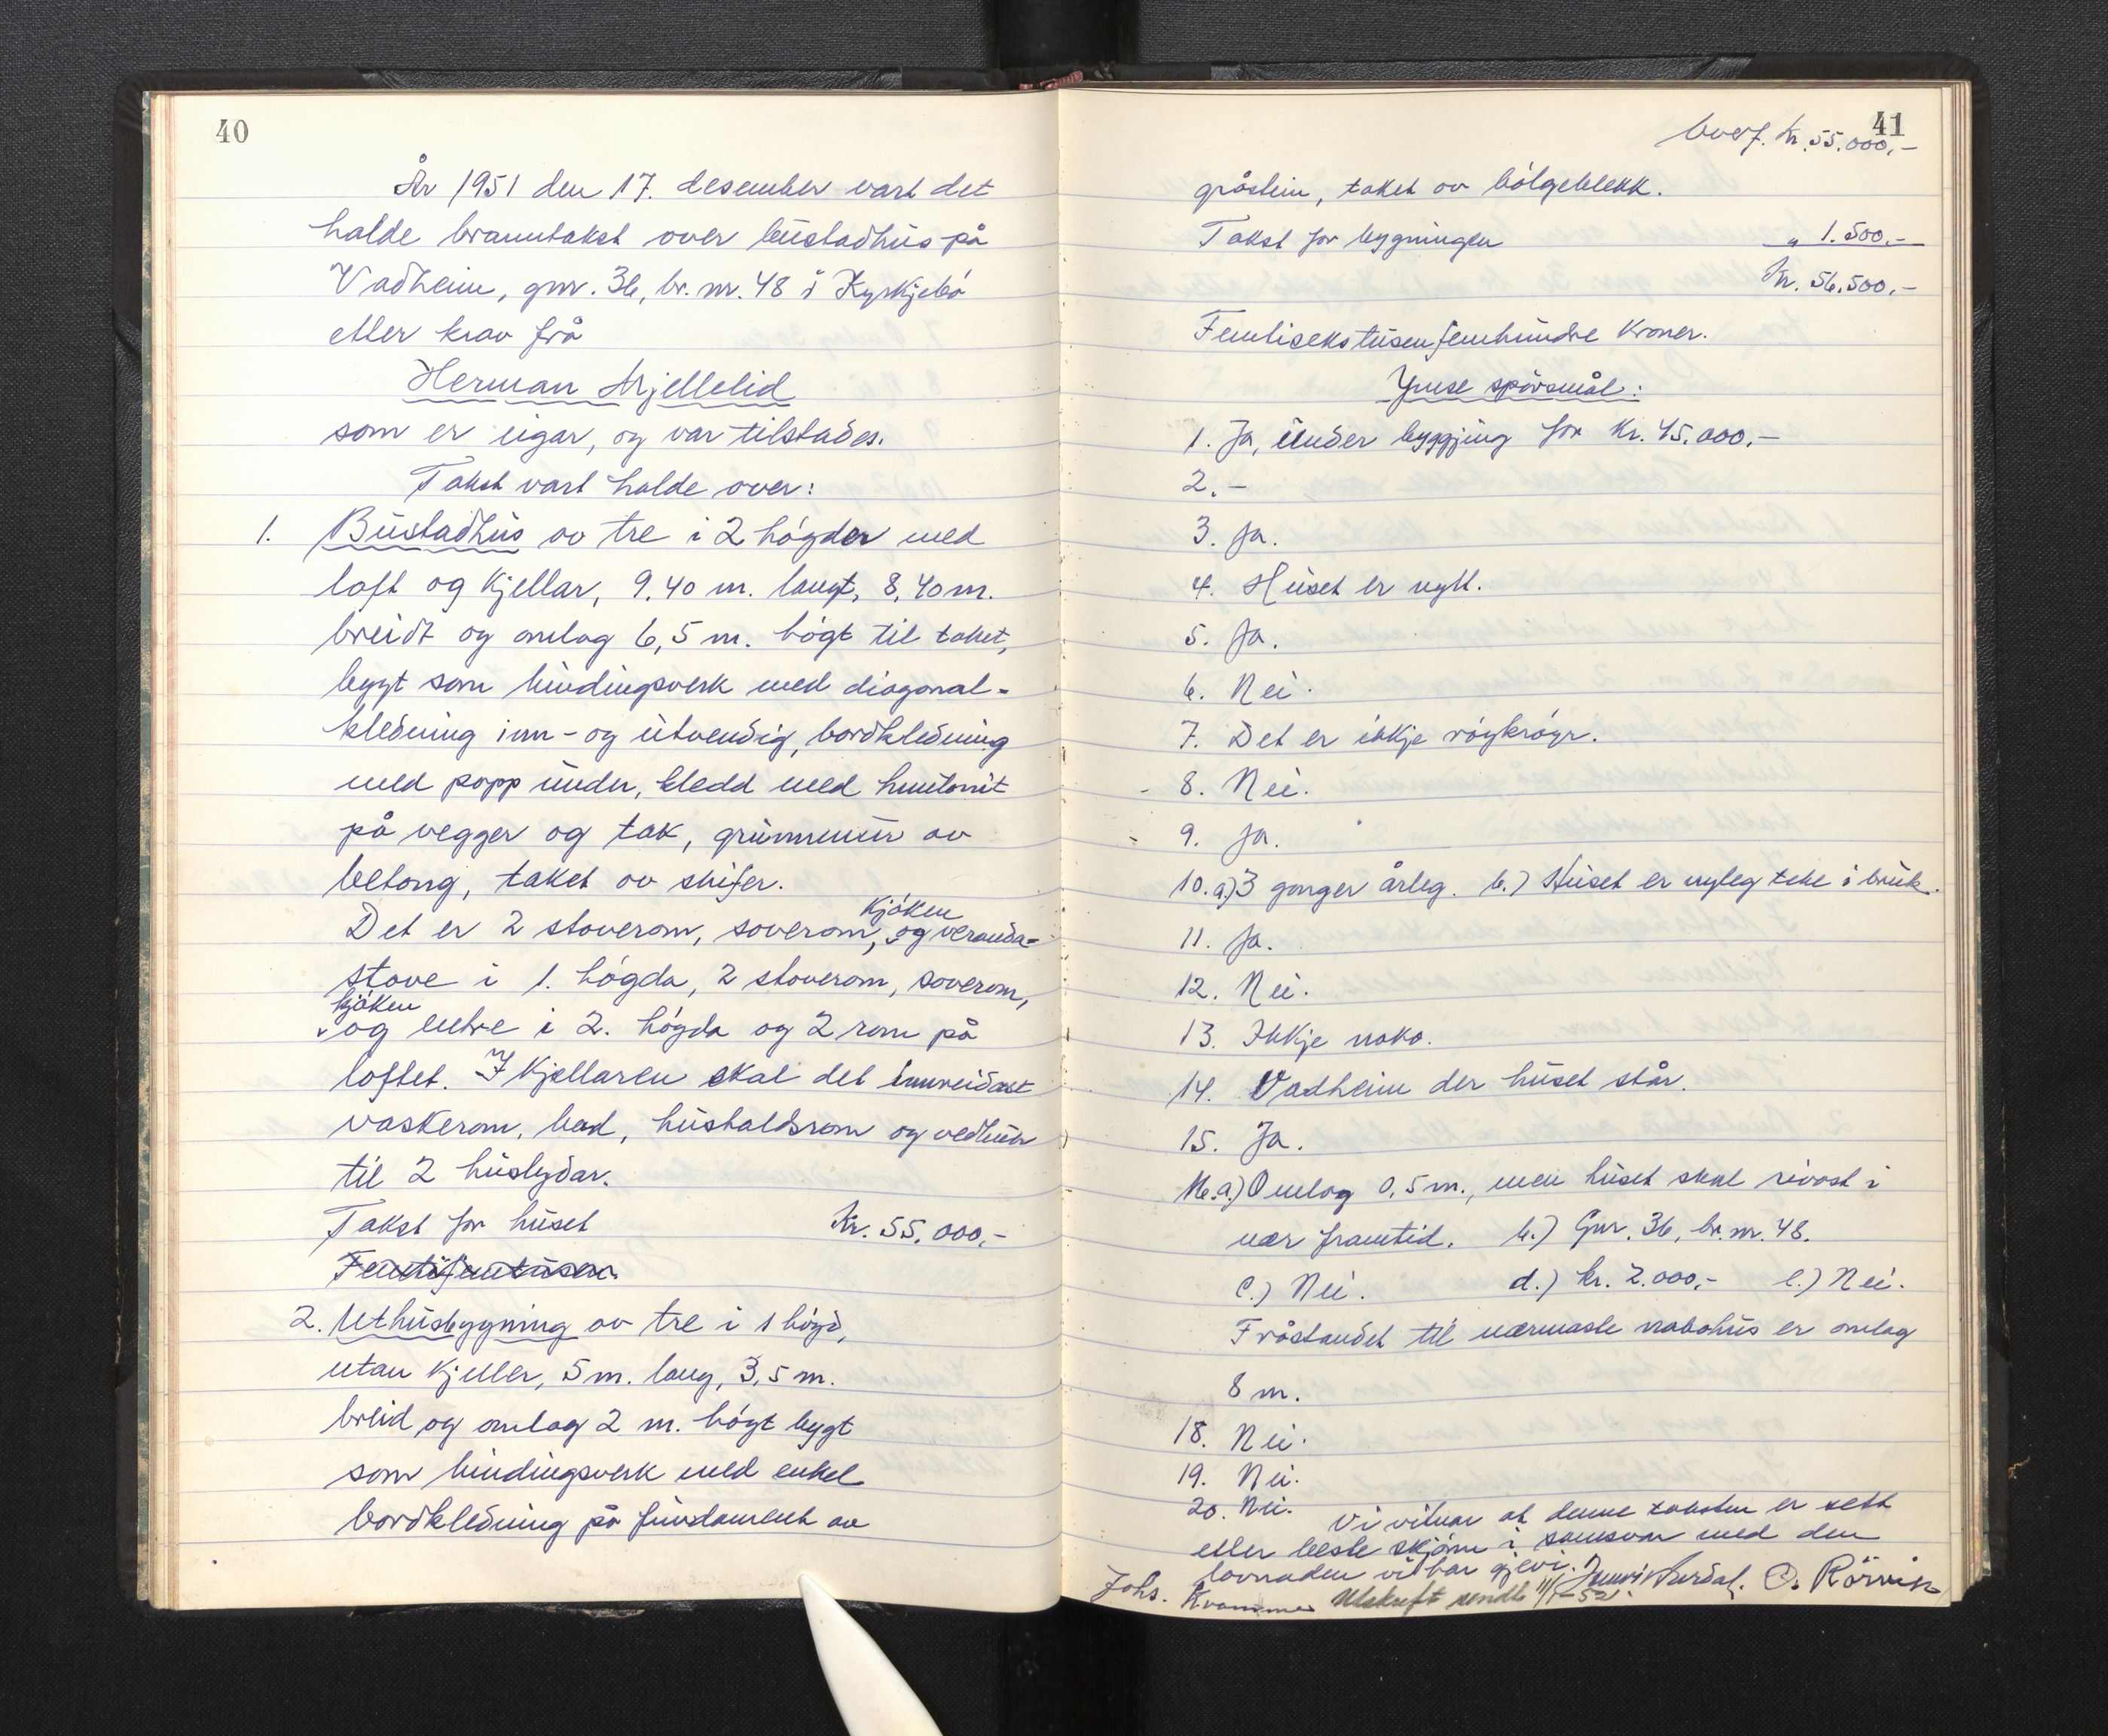 40
År 1951 den 17. desember vart det
halde branntakst over bustadhus på
Vadheim, gnr. 36, br. nr. 48 i Kyrkjebö
etter krav frå
Herman Mjellelid
som er eigar, og var tilstades.
Takst vart halde over:
1. Bustadhus av tre i 2 högder med
loft og kjellar, 9,40 m. langt, 8,40 m.
breidt og omlag 6,5 m. högt til taket,
bygt som bindingsverk med diagonal-
kledning inn- og utvendig, bordkledning
med papp under, kledd med huntonit
på vegger og tak, grunnmur av
betong, taket av skifer.
Det er 2 stoverom, soverom, kjöken og veranda-
stove i 1. högda, 2 stoverom, soverom,
kjöken og entre i 2. högda og 2 rom på
loftet. I kjellaren skal det innreidast
vaskerom, bad, hushaldsrom og vedbur
til 2 huslydar.
Takst for huset Kr. 55.000,-
Femtifemtusen
2. Uthusbygning av tre i 1 högd,
utan kjeller, 5 m. lang, 3,5 m.
breid og omlag 2 m. högt bygt
som bindingsverk med enkel
bordkledning på fundament av
41
Overf. kr. 55.000,-
gråstein, taket av bölgeblekk.
Takst for bygningen " 1.500,-
Kr. 56.500,-
Femtisekstusenfemhundre kroner.
Ymse spörsmål:
1. Ja, under bygging for kr. 45.000,-
2. -
3. Ja.
4. Huset er nytt.
5. Ja.
6. Nei.
7. Det er ikkje röykröyr.
8. Nei.
9. Ja.
10. a.) 3 gonger årleg. b.) Huset er nyleg teke i bruk.
11. Ja.
12. Nei.
13. Ikkje noko.
14. Vadheim der huset står.
15. Ja.
16. a.) Omlag 0,5 m., men huset skal rivast i
nær framtid. b.) Gnr. 36, br. nr. 48.
c.) Nei. d.) kr. 2.000,- e.) Nei.
Fråstandet til nærmaste nabohus er omlag
8 m.
18. Nei.
19. Nei.
20. Nei. Vi vitnar at denne taksten er sett
etter beste skjönn i samsvar med den
lovnaden vi har gjevi.
Johs. Kvamme Utskrift sendt 11/1-52. O. Rörvik